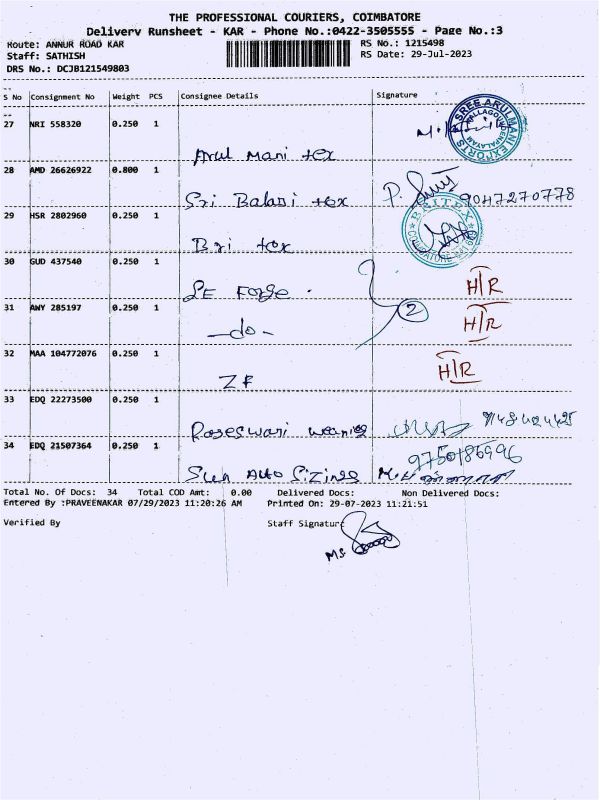 THE PROFESSIONAL COURIERS, COIMBATORE
Delivery Runsheet - KAR - Phone No.:0422-3505555 - Page No.:3
Route: ANNUR ROAD KAR
RS No.: 1215498
Staff: SATHISH
RS Date: 29-Jul-2023
DRS No.: DCJB121549803
S No Consignment No Weight PCS Consignee Details Signature
27 NRI 558320 0.250 1
SREE ARULMANI EXPORTS
Arul Mani tex
28 AMD 26626922 0.800 1
Sri Balaji tex P. 9047270778
29 HSR 2802960 0.250 1
BRITEX
Bri tex
30 GUD 437540 0.250 1
SE Forge . H/R
31 AWY 285197 0.250 1
-do- 2 H/R
32 MAA 104772076 0.250 1
ZF H/R
33 EDQ 22273500 0.250 1
34 EDQ 21507364 0.250 1
9750186996
Sun Auto Sizings
Total No. Of Docs: 34 Total COD Amt: 0.00 Delivered Docs: Non Delivered Docs:
Entered By :PRAVEENAKAR 07/29/2023 11:20:26 AM Printed On: 29-07-2023 11:21:51
Verified By Staff Signature